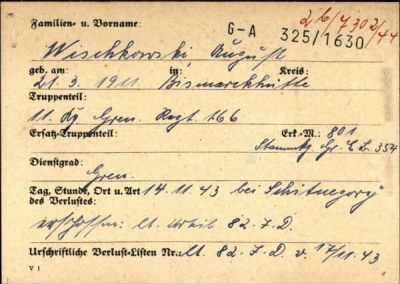 Familien- u. Vorname: G-A 325/1630 2/6/4302/44
Wischkowski, August
geb. am: in: Kreis:
21. 3. 1911 Bismarckhütte
Truppenteil:
11. Kp. Gren. Regt. 166
Ersatz-Truppenteil: Erk.-M.: 801
Stammkp. Gr. E. B. 354
Dienstgrad:
Gren.
Tag, Stunde, Ort u. Art 14. 11. 43 bei Schitnegory
des Verlustes:
erschossen: lt. Urteil 82. J. D.
Urschriftliche Verlust-Listen Nr. lt. 82. J. D. v. 17/11. 43
V 1